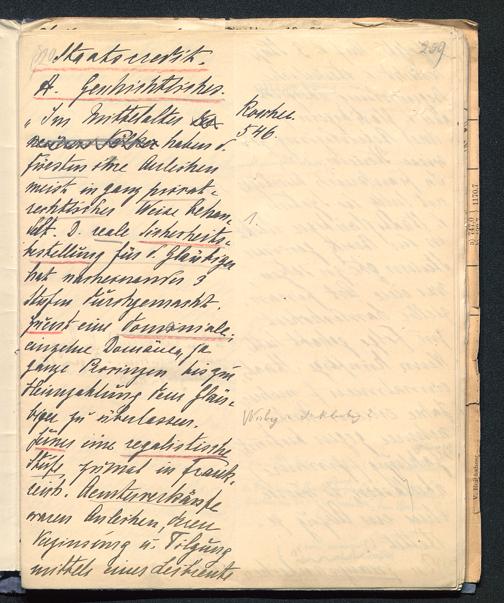 259
Staatscredit.
A. Geschichtliches.
„Im Mittelalter
haben d.
Fürsten ihre Anleihen
meist in ganz privat-
rechtlicher Weise behan-
delt. D. reale Sicherheits-
bestellung für d. Gläubiger
hat nacheinander 3
Stufen durchgemacht.
Zuerst eine Domaniale;
einzelne Domänen, ja
ganze Provinzen bis zur
Heimzahlung dem Gläu-
biger zu überlassen.
eine regalistische
Stufe, zumal in Frank-
reich. Aemterverkäufe
waren Anleihen, deren
Verzinsung u. Tilgung
mittels eines
Roscher
546.
1.